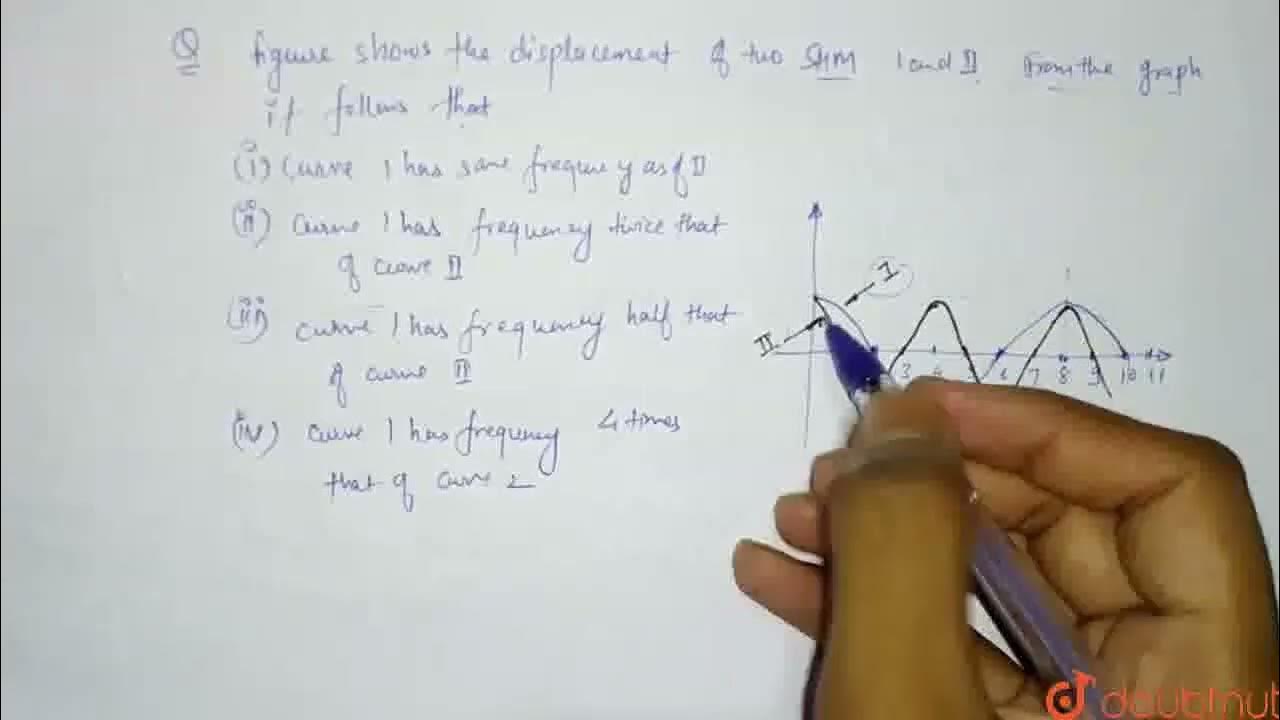 Q figure shows the displacement of two SHM I and II From the graph
it follows that
(i) Curve I has same frequency as of II
(ii) curve I has frequency twice that
of curve II
(iii) curve I has frequency half that
of curve II
(iv) curve I has frequency 4 times
that of curve 2
I
II
3 4 5 6 7 8 9 10 11
doubtnut